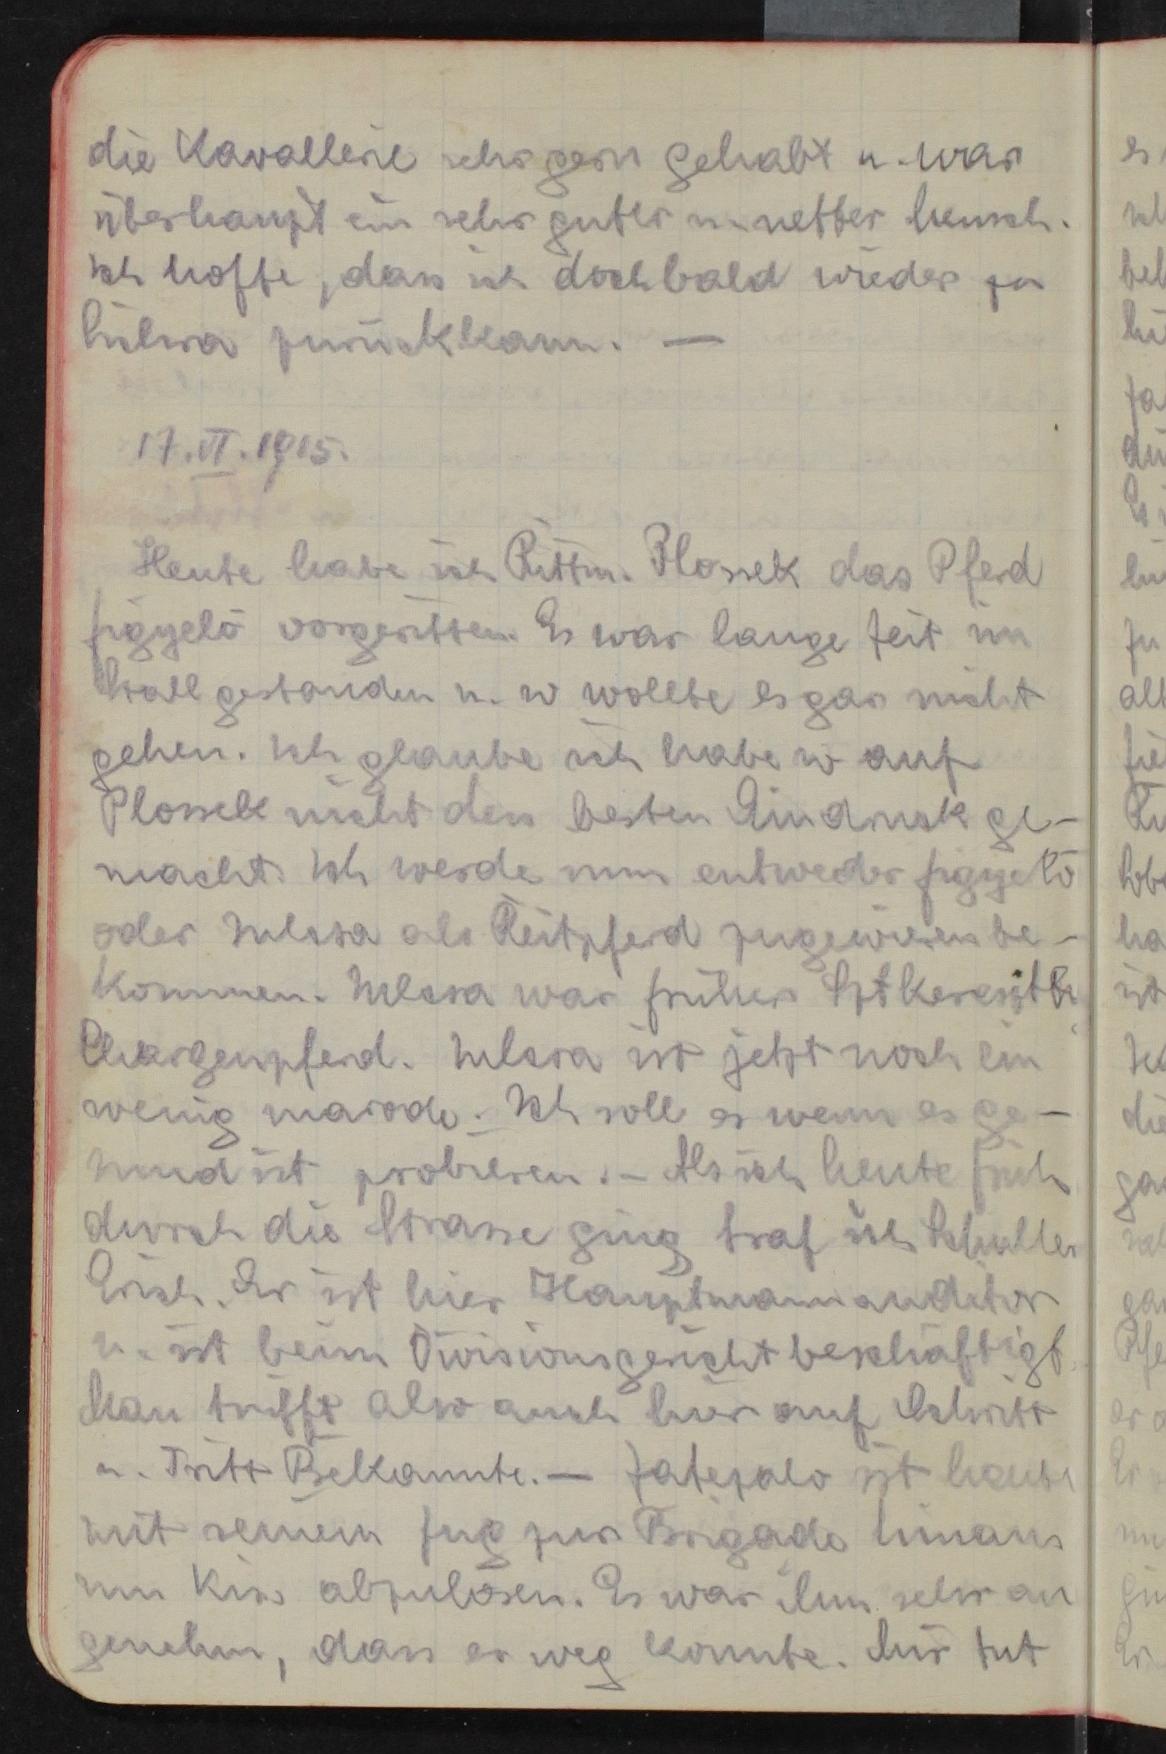 die Kavallerie sehr gern gehabt u. war
überhaupt ein sehr guter u. netter Mensch.
Ich hoffe, dass ich doch bald wieder zu
Mislwa zurück kann. —
17.VI.1915.
Heute habe ich Rittm. Plossek das Pferd
figyelö vorgeritten. Es war lange Zeit im
Stall gestanden u. so wollte es gar nicht
gehen. Ich glaube ich habe so auf
Plossek nicht den besten Eindruck ge-
macht. Ich werde nun entweder figyelö
oder als Reitpferd zugewiesen be-
kommen. war früher
Chargenpferd. ist jetzt noch ein
wenig marode. Ich soll es wenn es ge-
sund ist probieren. - Als ich heute früh
durch die Strasse ging traf ich Schuller
Erich. Er ist hier Hauptmannauditor
u. ist beim Divisionsgericht beschäftigt.
Man trifft also auch hier auf Schritt
u. Tritt Bekannte. — ist heute
mit seinem Zug zur Brigade hinaus
um Kiss abzulösen. Es war ihm sehr an
genehm, dass er weg konnte. Mir tut